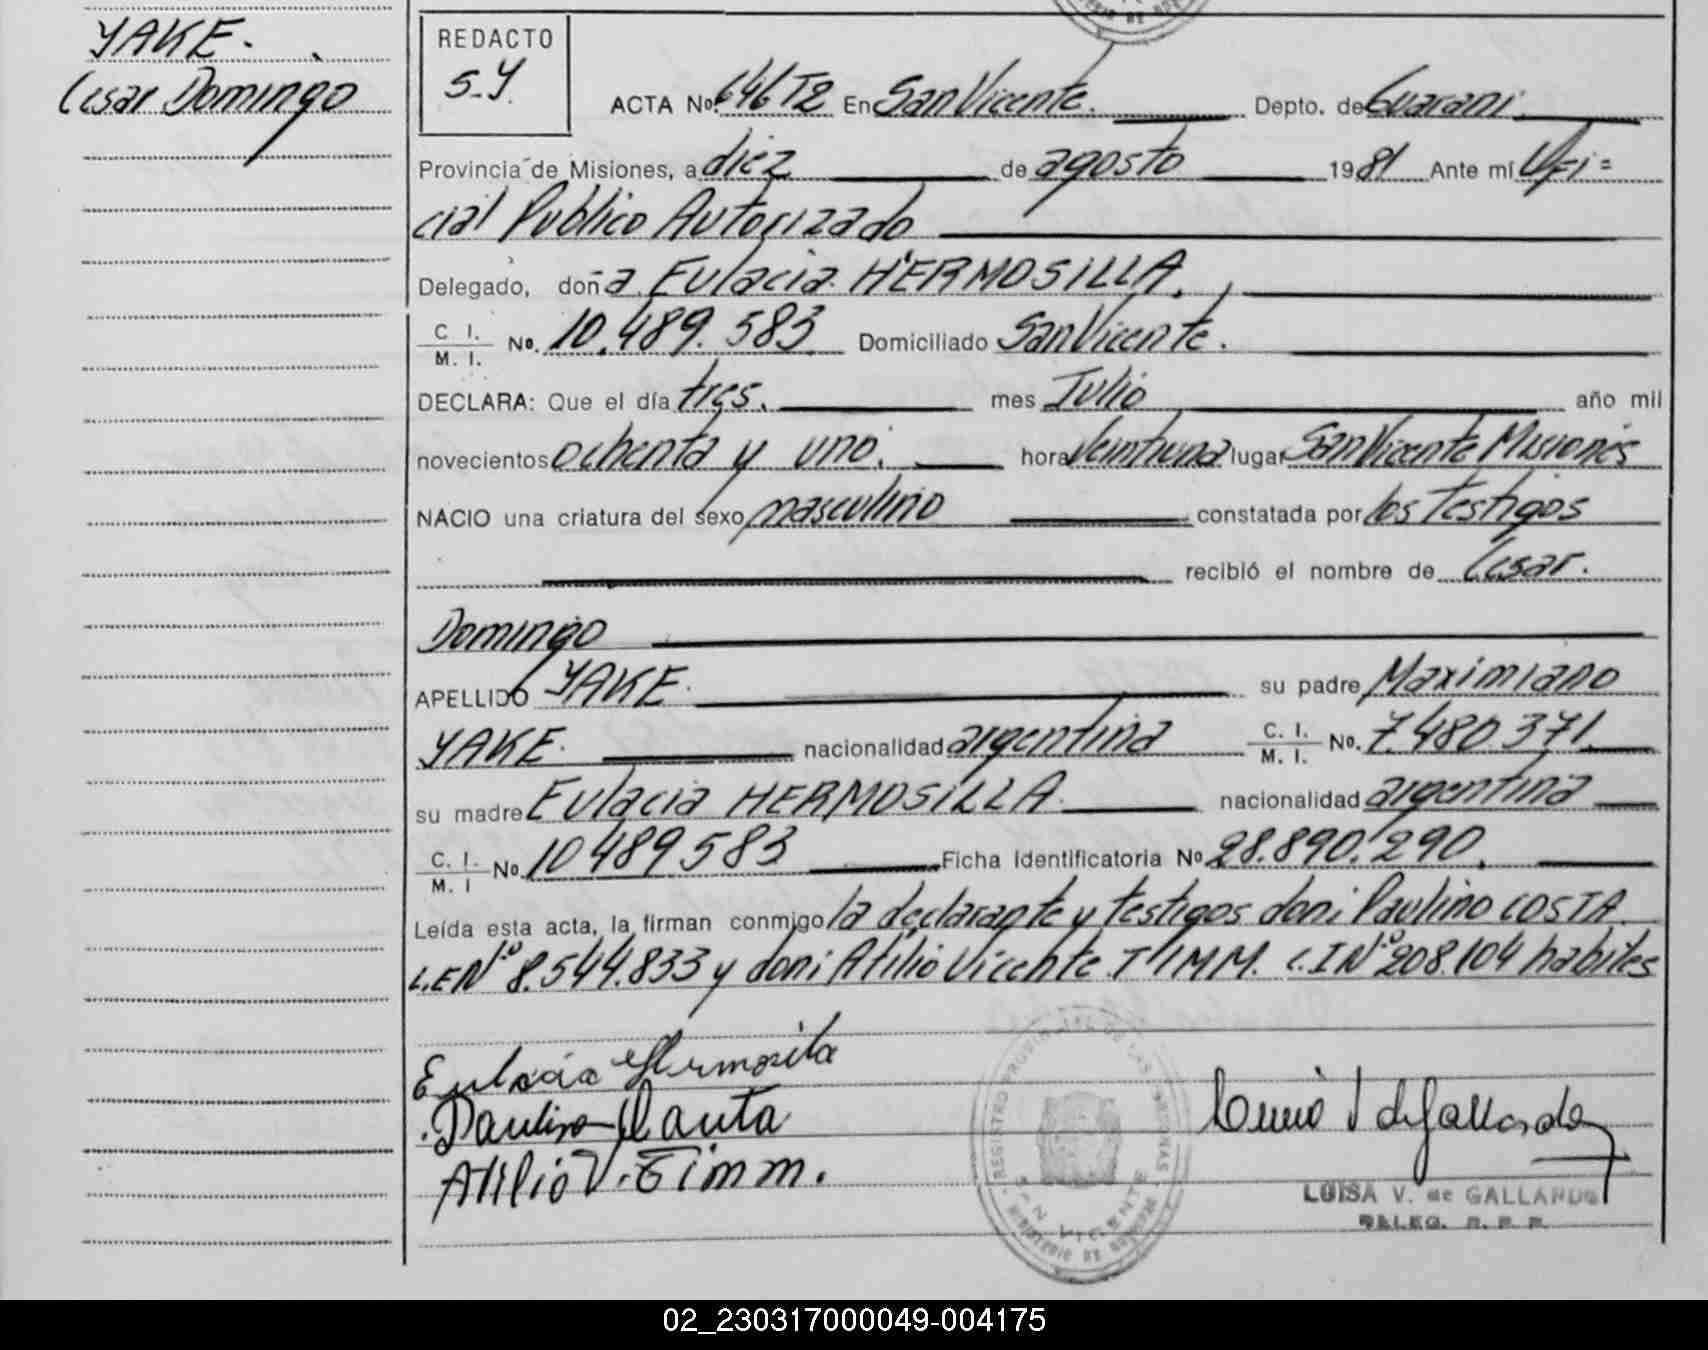 YAKE.
Cesar Domingo
REDACTO
S-Y.
ACTA No. 646T2 En San Vicente. Depto. de Guarani.
Provincia de Misiones, a diez de agosto 1981 Ante mí Ofi=
cial Publico Autorizado
Delegado, doña Eulacia HERMOSILLA.
C. I.
M. I. No. 10.489.583 Domiciliado San Vicente.
DECLARA: Que el día tres. mes Julio año mil
novecientos ochenta y uno. hora Veintiuna lugar San Vicente Misiones
NACIO una criatura del sexo masculino constatada por los testigos
recibió el nombre de Cesar.
Domingo
APELLIDO YAKE. su padre Maximiano
YAKE. nacionalidad argentina C. I.
M. I. No. 7.480.371.
su madre Eulacia HERMOSILLA. nacionalidad argentina
C. I.
M. I No. 10489583 Ficha Identificatoria No 28.890.290.
Leída esta acta, la firman conmigo la declarante y testigos don: Paulino COSTA.
L.E Nº 8.544.833 y don: Atilio Vicente TIMM. C.I Nº 208.104 habiles
Eulacia Hermosila
Paulino
Atilio V. Timm.
REGISTRO PROVINCIAL DE LAS PERSONAS
SAN VICENTE
MINISTERIO DE GOBIERNO
de Gallardo
LUISA V. de GALLARDO
DELEG. R. P. P.
02_230317000049-004175